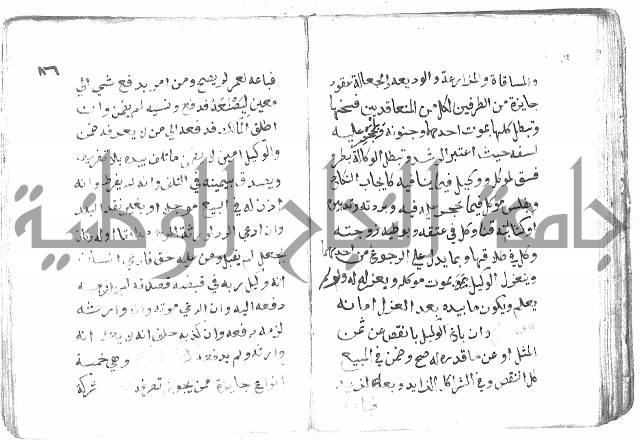 والمساقاة والمزارعة والوديعة والجعالة عقود
جايزة من الطرفين لكل من المتعاقدين فسخها
وتبطل كلها بموت احدهما وجنونه وبحجر عليه
لسفه حيث اعتبر الرشد وتبطل الوكالة بطرو
فسق لموكل ووكيل فيما ينافيه كايجاب النكاح
وبفلس موكل فيما حجر عليه فيه وبردته وتدبيره
او كتابته قنا وكل في عتقه وبوطيه زوجته
وكله في طلاقها وبما يدل على الرجوع من احدهما
وينعزل الوكيل بموت موكله وبعزله له ولو لم
يعلم ويكون ما بيده بعد العزل امانة
وان باع الوكيل بانقص عن ثمن
المثل او عن ما قدره له صح وضمن في المبيع
كل النقص وفي الشرا كل الزايد وبعه لزيد
فباعه
٨٦
فباعه لغيره لم يصح ومن امر بدفع شي الى
معين ليصنعه فدفع ونسيه لم يضمن وان
اطلق المالك فدفعه الى من لا يعرفه ضمن
والوكيل امين لا يضمن ما تلف بيده بلا تفريط
ويصدق بيمينه في التلف وانه لم يفرط وانه
اذن له في البيع موجلا او بغير نقد البلد
وان ادعى الرد
بجعل لم يقبل ومن عليه حق فادعى انسان
انه وكيل ربه في قبضه فصدقه لم يلزمه
دفعه اليه وان ادعى موته وانه وارثه
لزمه دفعه وان كذبه حلف انه لا يعلم انه
وارثه ولم يدفعه وهي خمسة
انواع جايزة ممن يجوز تصرفه شركة
جامعة النجاح الوطنية